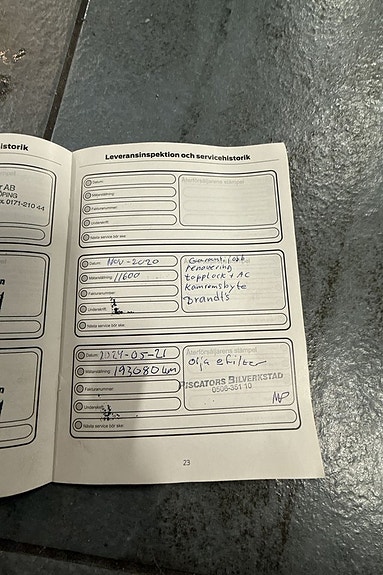 istorik
AB
ÖPING
0171-210 44
Leveransinspektion och servicehistorik
Datum:
Återförsäljarens stämpel
Mätarställning:
Fakturanummer:
Underskrift:
Nästa service bör ske:
Datum: Nov-2020
Mätarställning: 11600
Fakturanummer:
Underskrift:
Nästa service bör ske:
Garanti jobb
renovering
topplock + AC
Kamremsbyte
Brandt's
Datum: 2024-05-21
Mätarställning: 193080 km
Fakturanummer:
Underskrift:
Nästa service bör ske:
Återförsäljarens stämpel
Olja & filter
PISCATORS BILVERKSTAD
0506-361 10
23